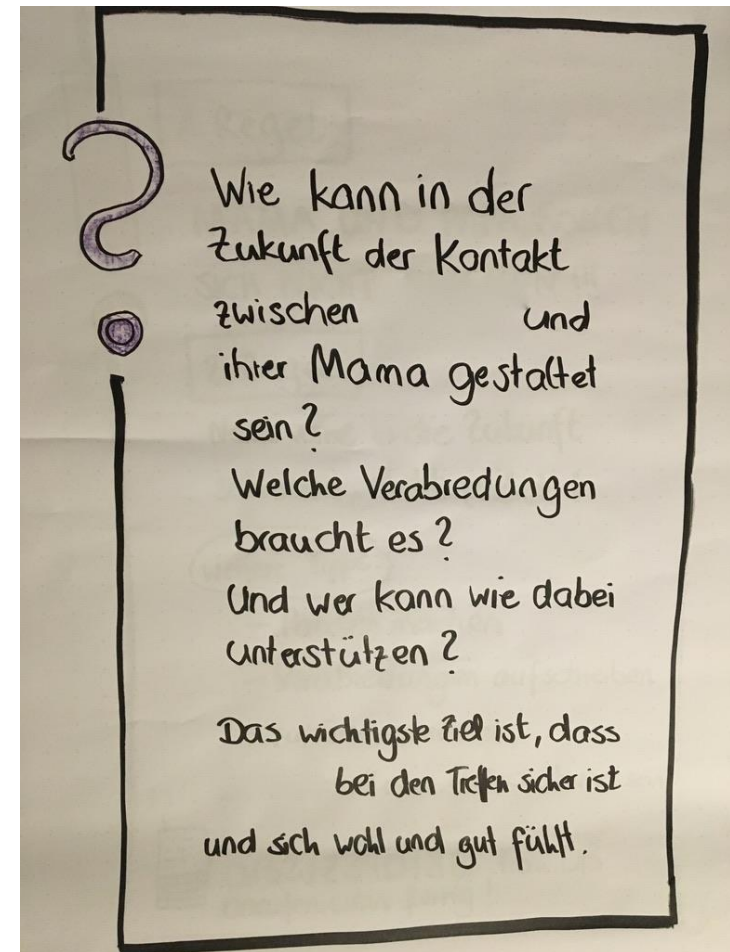 Wie kann in der
Zukunft der Kontakt
zwischen und
ihrer Mama gestaltet
sein?
Welche Verabredungen
braucht es?
Und wer kann wie dabei
unterstützen?
Das wichtigste Ziel ist, dass
bei den Treffen sicher ist
und sich wohl und gut fühlt.